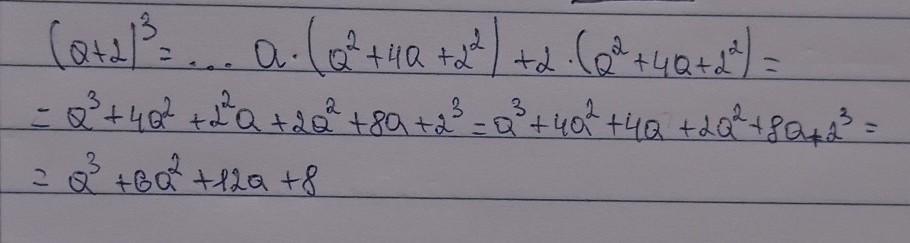 (a+2)³ = ... a·(a²+4a+2²)+2·(a²+4a+2²)=
= a³+4a²+2²a+2a²+8a+2³=a³+4a²+4a+2a²+8a+2³=
= a³+6a²+12a+8